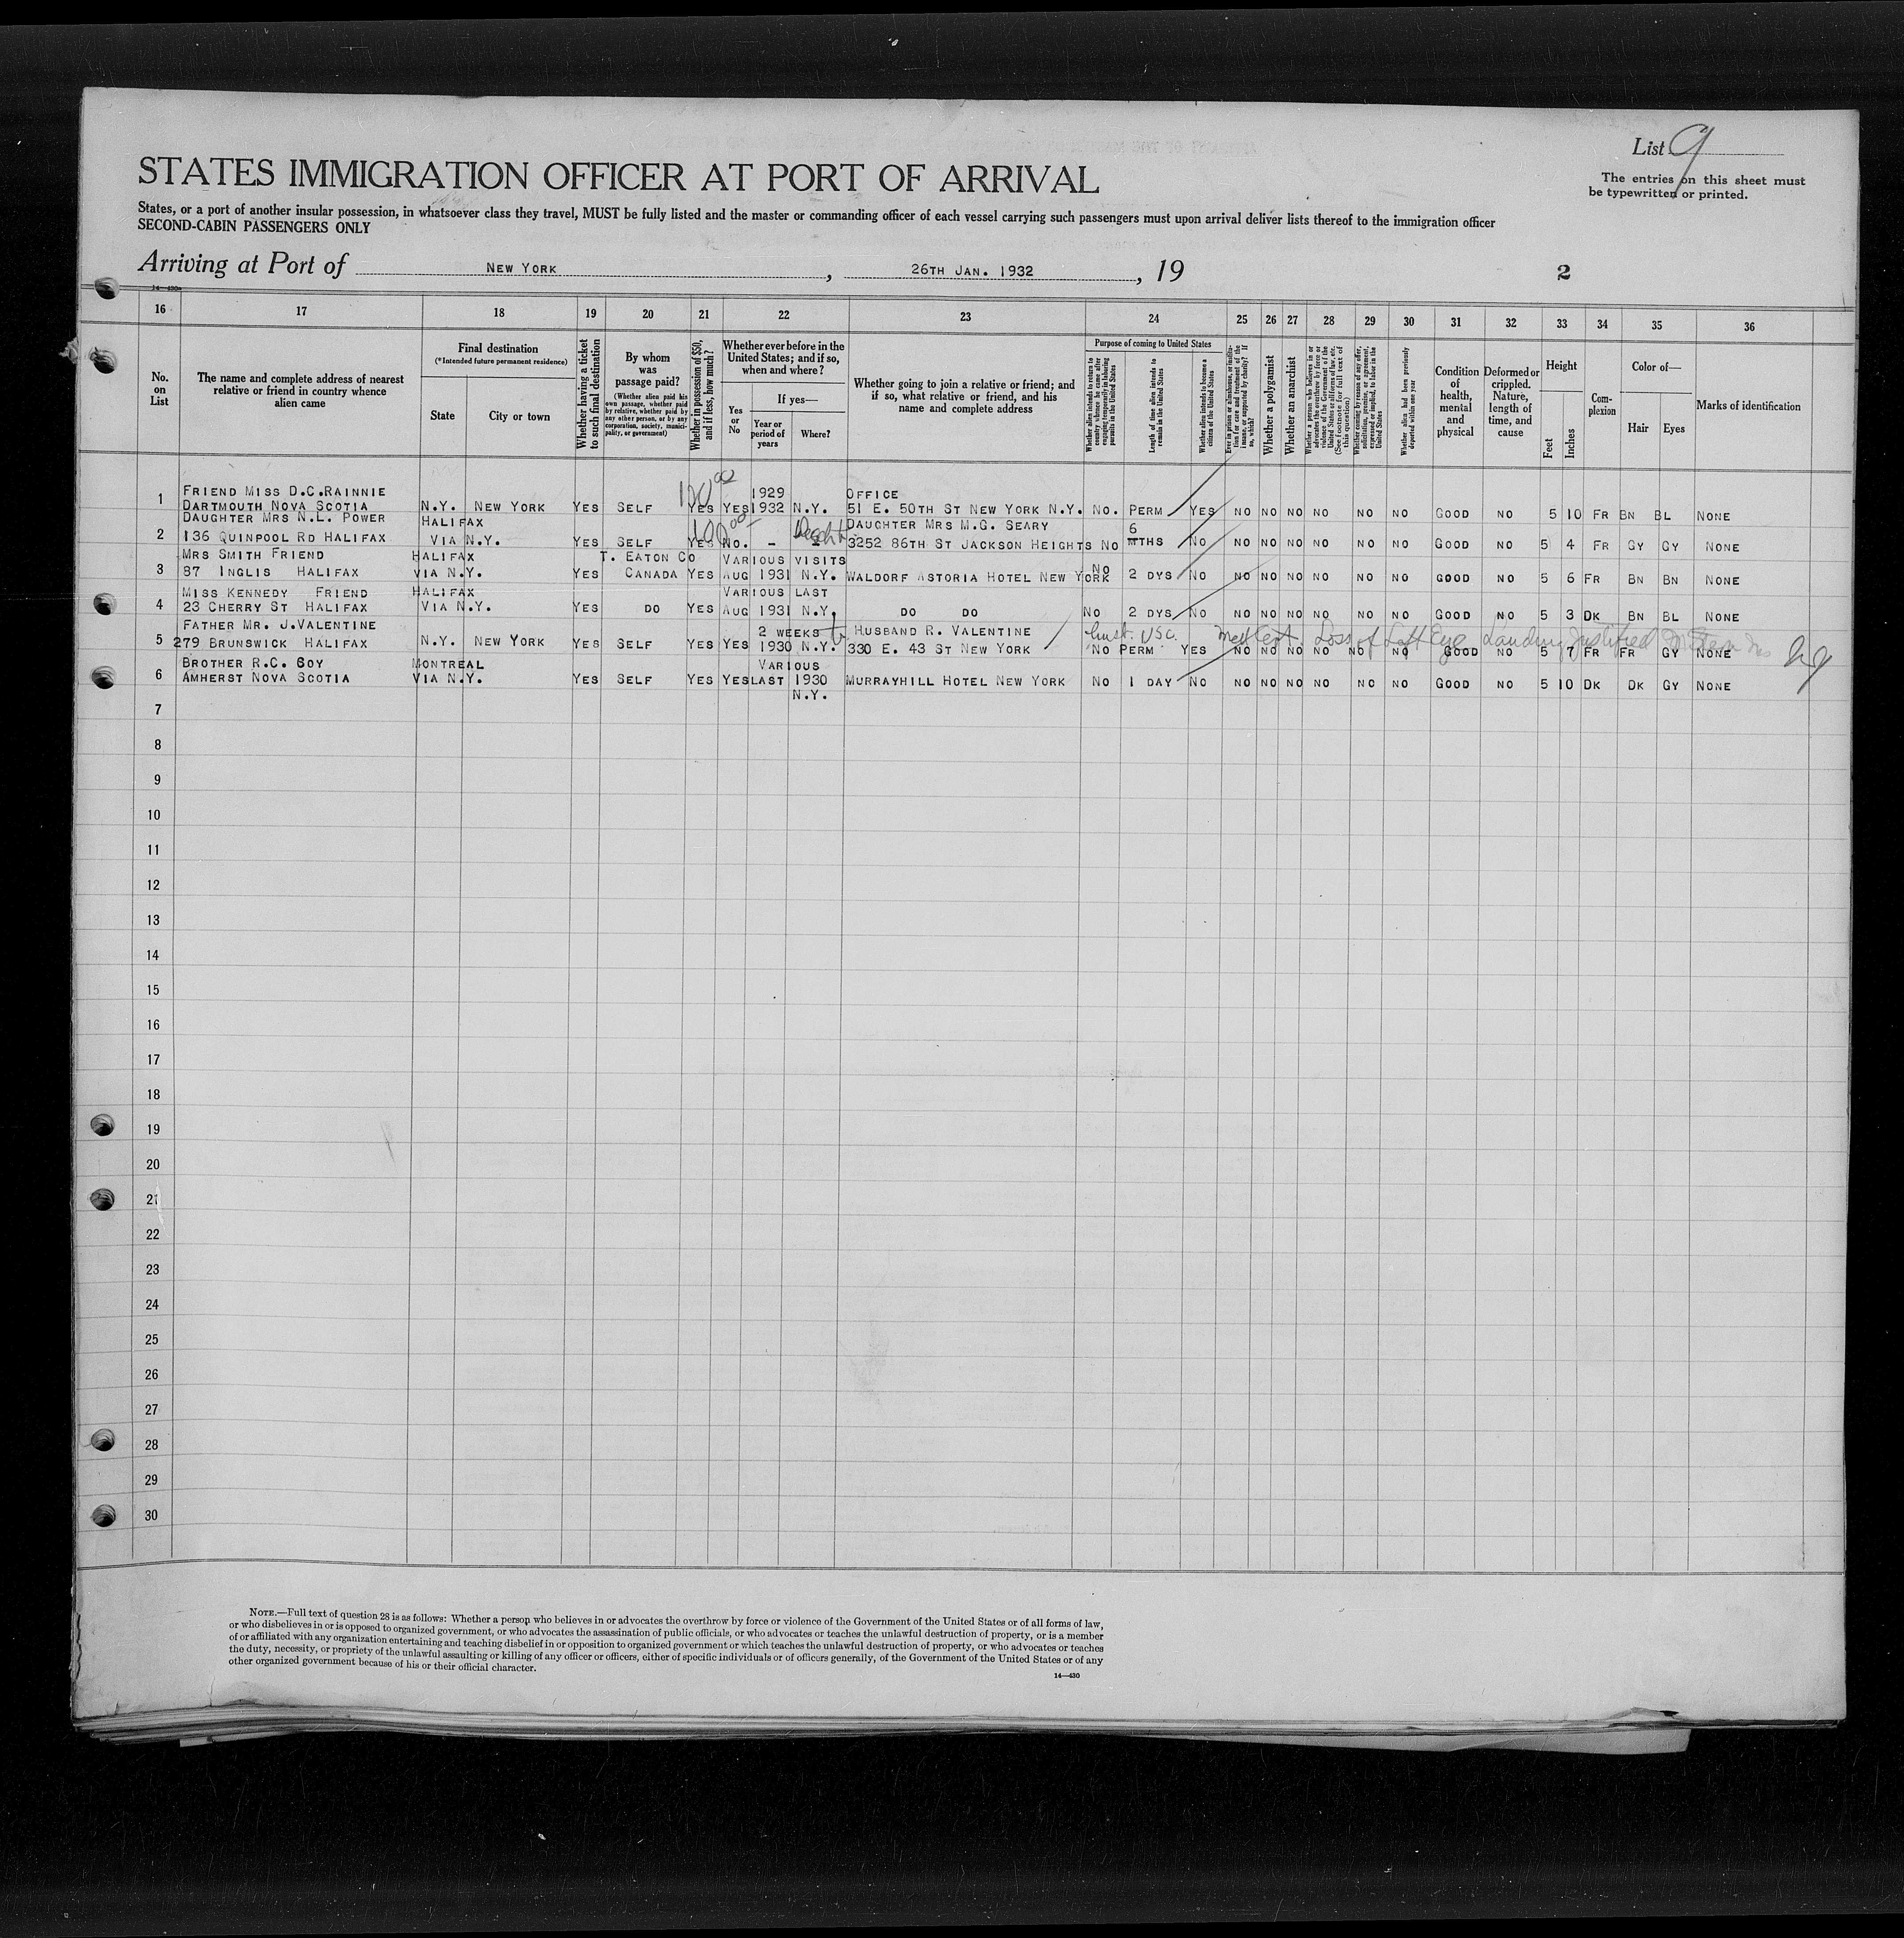 List 9
The entries on this sheet must
be typewritten or printed.
STATES IMMIGRATION OFFICER AT PORT OF ARRIVAL
States, or a port of another insular possession, in whatsoever class they travel, MUST be fully listed and the master or commanding officer of each vessel carrying such passengers must upon arrival deliver lists thereof to the immigration officer
SECOND-CABIN PASSENGERS ONLY
Arriving at Port of NEW YORK, 26TH JAN. 1932, 19
2
14—430a
16 17 18 19 20 21 22 23 24 25 26 27 28 29 30 31 32 33 34 35 36
No. on List
The name and complete address of nearest relative or friend in country whence alien came
Final destination
(*Intended future permanent residence)
State
City or town
Whether having a ticket to such final destination
By whom was passage paid?
(Whether alien paid his own passage, whether paid by relative, whether paid by any other person, or by any corporation, society, municipality, or government)
Whether in possession of $50, and if less, how much?
Whether ever before in the United States; and if so, when and where?
If yes—
Yes or No
Year or period of years
Where?
Whether going to join a relative or friend; and if so, what relative or friend, and his name and complete address
Purpose of coming to United States
Whether alien intends to return to country whence he came after engaging temporarily in laboring pursuits in the United States
Length of time alien intends to remain in the United States
Whether alien intends to become a citizen of the United States
Ever in prison or almshouse, or institution for care and treatment of the insane, or supported by charity? If so, which?
Whether a polygamist
Whether an anarchist
Whether a person who believes in or advocates the overthrow by force or violence of the Government of the United States or all forms of law, etc. (See footnote for full text of this question)
Whether coming by reason of any offer, solicitation, promise, or agreement, expressed or implied, to labor in the United States
Whether alien had been previously deported within one year
Condition of health, mental and physical
Deformed or crippled. Nature, length of time, and cause
Height
Feet
Inches
Complexion
Color of—
Hair
Eyes
Marks of identification
120 00
1 FRIEND MISS D.C.RAINNIE 1929 OFFICE
DARTMOUTH NOVA SCOTIA N.Y. NEW YORK YES SELF YES YES 1932 N.Y. 51 E. 50TH ST NEW YORK N.Y. NO. PERM YES NO NO NO NO NO NO GOOD NO 5 10 FR BN BL NONE
100 00
2 DAUGHTER MRS N.L. POWER HALIFAX DAUGHTER MRS M.G. SEARY 6
136 QUINPOOL RD HALIFAX VIA N.Y. YES SELF YES NO. - - 3252 86TH ST JACKSON HEIGHTS NO MTHS NO NO NO NO NO NO NO GOOD NO 5 4 FR GY GY NONE
3 MRS SMITH FRIEND HALIFAX T. EATON CO VARIOUS VISITS NO
87 INGLIS HALIFAX VIA N.Y. YES CANADA YES AUG 1931 N.Y. WALDORF ASTORIA HOTEL NEW YORK 2 DYS NO NO NO NO NO NO NO GOOD NO 5 6 FR BN BN NONE
4 MISS KENNEDY FRIEND HALIFAX VARIOUS LAST
23 CHERRY ST HALIFAX VIA N.Y. YES DO YES AUG 1931 N.Y. DO DO NO 2 DYS NO NO NO NO NO NO NO GOOD NO 5 3 DK BN BL NONE
5 FATHER MR. J.VALENTINE 2 WEEKS HUSBAND R. VALENTINE Husb. USC. Med Cert. Loss of Left Eye Landing Justified
279 BRUNSWICK HALIFAX N.Y. NEW YORK YES SELF YES YES 1930 N.Y. 330 E. 43 ST NEW YORK NO PERM YES NO NO NO NO NO NO GOOD NO 5 7 FR FR GY NONE
6 BROTHER R.C. BOY MONTREAL VARIOUS
AMHERST NOVA SCOTIA VIA N.Y. YES SELF YES YES LAST 1930 MURRAYHILL HOTEL NEW YORK NO 1 DAY NO NO NO NO NO NO NO GOOD NO 5 10 DK DK GY NONE
N.Y.
7
8
9
10
11
12
13
14
15
16
17
18
19
20
21
22
23
24
25
26
27
28
29
30
NOTE.—Full text of question 28 is as follows: Whether a person who believes in or advocates the overthrow by force or violence of the Government of the United States or of all forms of law,
or who disbelieves in or is opposed to organized government, or who advocates the assassination of public officials, or who advocates or teaches the unlawful destruction of property, or is a member
of or affiliated with any organization entertaining and teaching disbelief in or opposition to organized government or which teaches the unlawful destruction of property, or who advocates or teaches
the duty, necessity, or propriety of the unlawful assaulting or killing of any officer or officers, either of specific individuals or of officers generally, of the Government of the United States or of any
other organized government because of his or their official character.
14—430